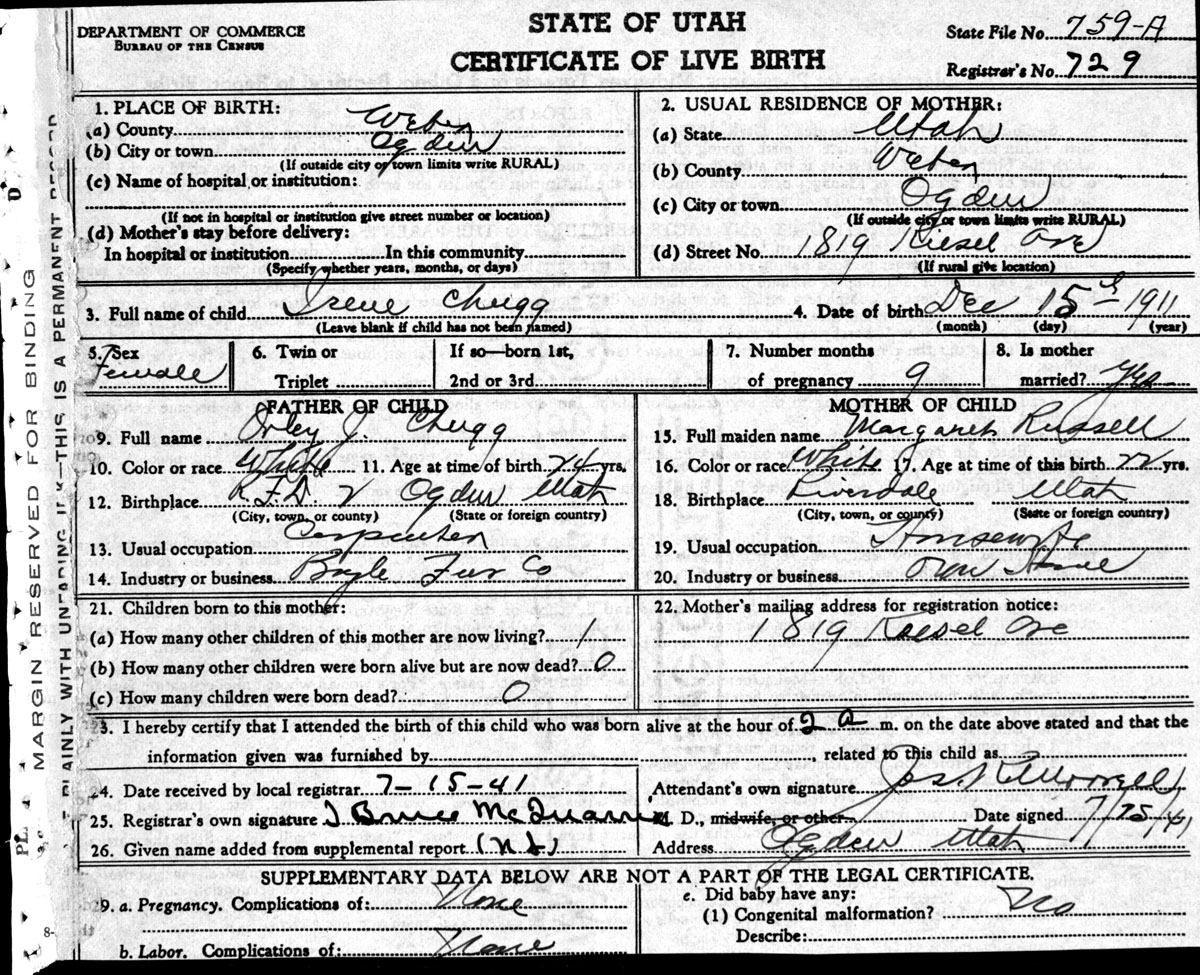 DEPARTMENT OF COMMERCE
BUREAU OF THE CENSUS
STATE OF UTAH
CERTIFICATE OF LIVE BIRTH
State File No. 759-A
Registrar's No. 729
1. PLACE OF BIRTH:
(a) County Weber
(b) City or town Ogden
(If outside city or town limits write RURAL)
(c) Name of hospital or institution:
(If not in hospital or institution give street number or location)
(d) Mother's stay before delivery:
In hospital or institution In this community
(Specify whether years, months, or days)
2. USUAL RESIDENCE OF MOTHER:
(a) State Utah
(b) County Weber
(c) City or town Ogden
(If outside city or town limits write RURAL)
(d) Street No. 1819 Kiesel Ave
(If rural give location)
3. Full name of child Irene Chugg
(Leave blank if child has not been named)
4. Date of birth Dec 15th 1911
(month) (day) (year)
5. Sex
Female
6. Twin or
Triplet
If so—born 1st,
2nd or 3rd
7. Number months
of pregnancy 9
8. Is mother
married? Yes
FATHER OF CHILD
9. Full name Orley J. Chugg
10. Color or race White 11. Age at time of birth 24 yrs.
12. Birthplace R.F.D. 2 Ogden Utah
(City, town, or county) (State or foreign country)
13. Usual occupation Carpenter
14. Industry or business Boyle Fur Co
MOTHER OF CHILD
15. Full maiden name Margaret Russell
16. Color or race White 17. Age at time of this birth 22 yrs.
18. Birthplace Riverdale Utah
(City, town, or county) (State or foreign country)
19. Usual occupation Housewife
20. Industry or business Own Home
21. Children born to this mother:
(a) How many other children of this mother are now living? 1
(b) How many other children were born alive but are now dead? 0
(c) How many children were born dead? 0
22. Mother's mailing address for registration notice:
1819 Kiesel Ave
3. I hereby certify that I attended the birth of this child who was born alive at the hour of 2 a m. on the date above stated and that the
information given was furnished by , related to this child as
24. Date received by local registrar 7-15-41
25. Registrar's own signature J Bruce McQuarrie
26. Given name added from supplemental report
Attendant's own signature
M. D., midwife, or other Date signed
Address Ogden Utah
SUPPLEMENTARY DATA BELOW ARE NOT A PART OF THE LEGAL CERTIFICATE.
29. a. Pregnancy. Complications of: None
b. Labor. Complications of: None
e. Did baby have any:
(1) Congenital malformation? No
Describe:
MARGIN RESERVED FOR BINDING
PLAINLY WITH UNFADING INK—THIS IS A PERMANENT RECOR